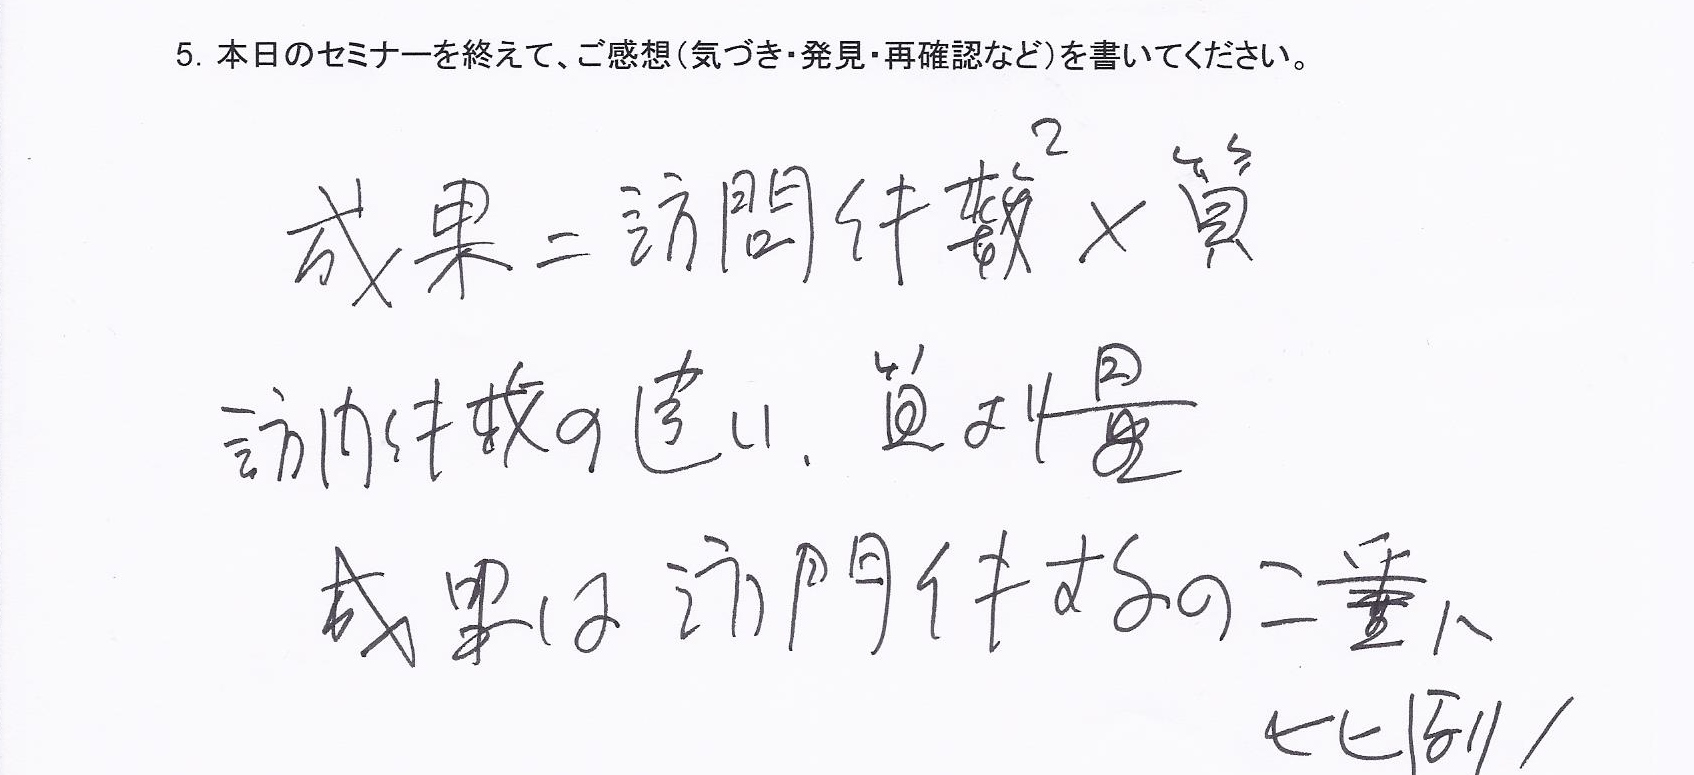 5. 本日のセミナーを終えて、ご感想（気づき・発見・再確認など）を書いてください。
成果=訪問件数²×質
訪問件数の違い、質より量
成果は訪問件するの二乗に
比例！